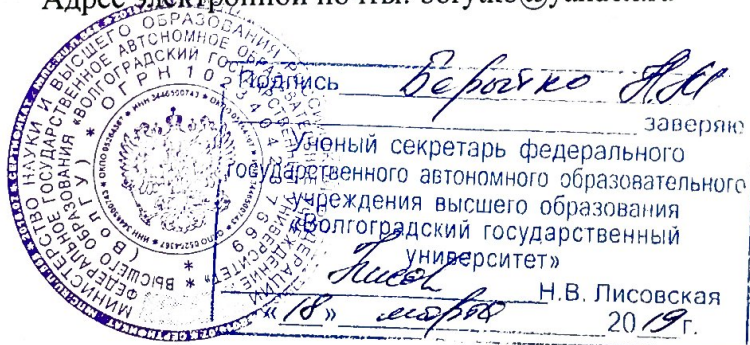 Адрес электронной почты:
Подпись Борытко Н.М
заверяю
Ученый секретарь федерального
государственного автономного образовательного
учреждения высшего образования
«Волгоградский государственный
университет»
Н.В. Лисовская
«18» марта 2019 г.
МИНИСТЕРСТВО НАУКИ И ВЫСШЕГО ОБРАЗОВАНИЯ РОССИЙСКОЙ ФЕДЕРАЦИИ
ФЕДЕРАЛЬНОЕ ГОСУДАРСТВЕННОЕ АВТОНОМНОЕ ОБРАЗОВАТЕЛЬНОЕ УЧРЕЖДЕНИЕ
ВЫСШЕГО ОБРАЗОВАНИЯ «ВОЛГОГРАДСКИЙ ГОСУДАРСТВЕННЫЙ УНИВЕРСИТЕТ»
(ВолГУ) * ОГРН